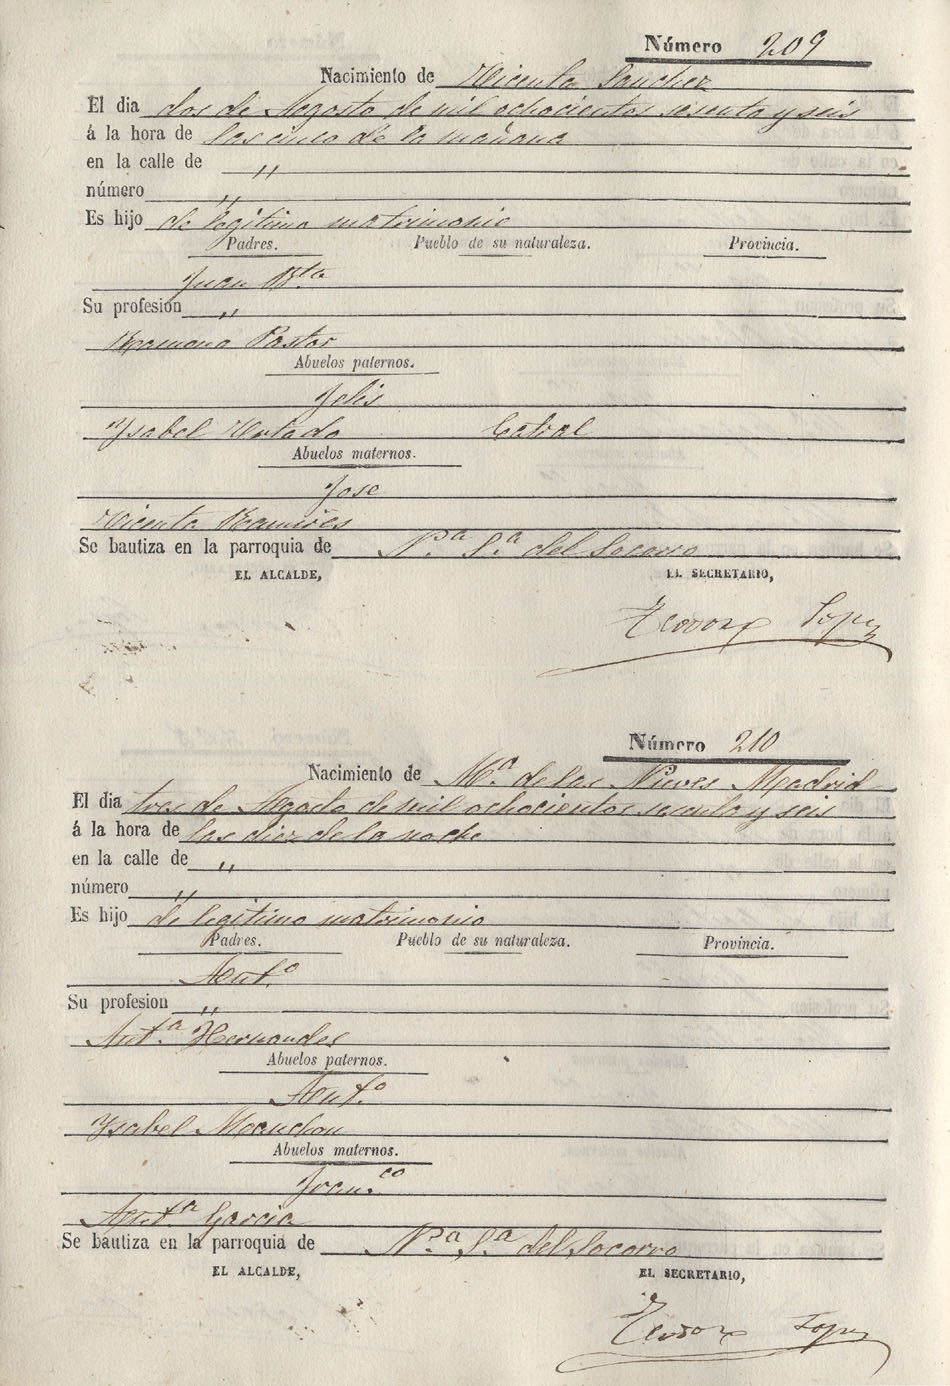 Número 209
Nacimiento de Vicenta Sanchez
El dia dos de Agosto de mil ochocientos sesenta y seis
á la hora de las cinco de la mañana
en la calle de "
número "
Es hijo de legitimo matrimonio
Padres. Pueblo de su naturaleza. Provincia.
Juan Bta
Su profesión "
Ramona Pastor
Abuelos paternos.
Felis
Ysabel Hurtado Catral
Abuelos maternos.
Jose
Vicenta Ramires
Se bautiza en la parroquia de Nª Sª del Socorro
EL ALCALDE, EL SECRETARIO,
Teodoro Lopez
Número 210
Nacimiento de Mª de las Nieves Madrid
El dia tres de Agosto de mil ochocientos sesenta y seis
á la hora de las diez de la noche
en la calle de "
número "
Es hijo de legitimo matrimonio
Padres. Pueblo de su naturaleza. Provincia.
Antº
Su profesion "
Antª Hernandes
Abuelos paternos.
Antº
Ysabel Manchon
Abuelos maternos.
Franco
Antª Garcia
Se bautiza en la parroquia de Nª Sª del Socorro
EL ALCALDE, EL SECRETARIO,
Teodoro Lopez